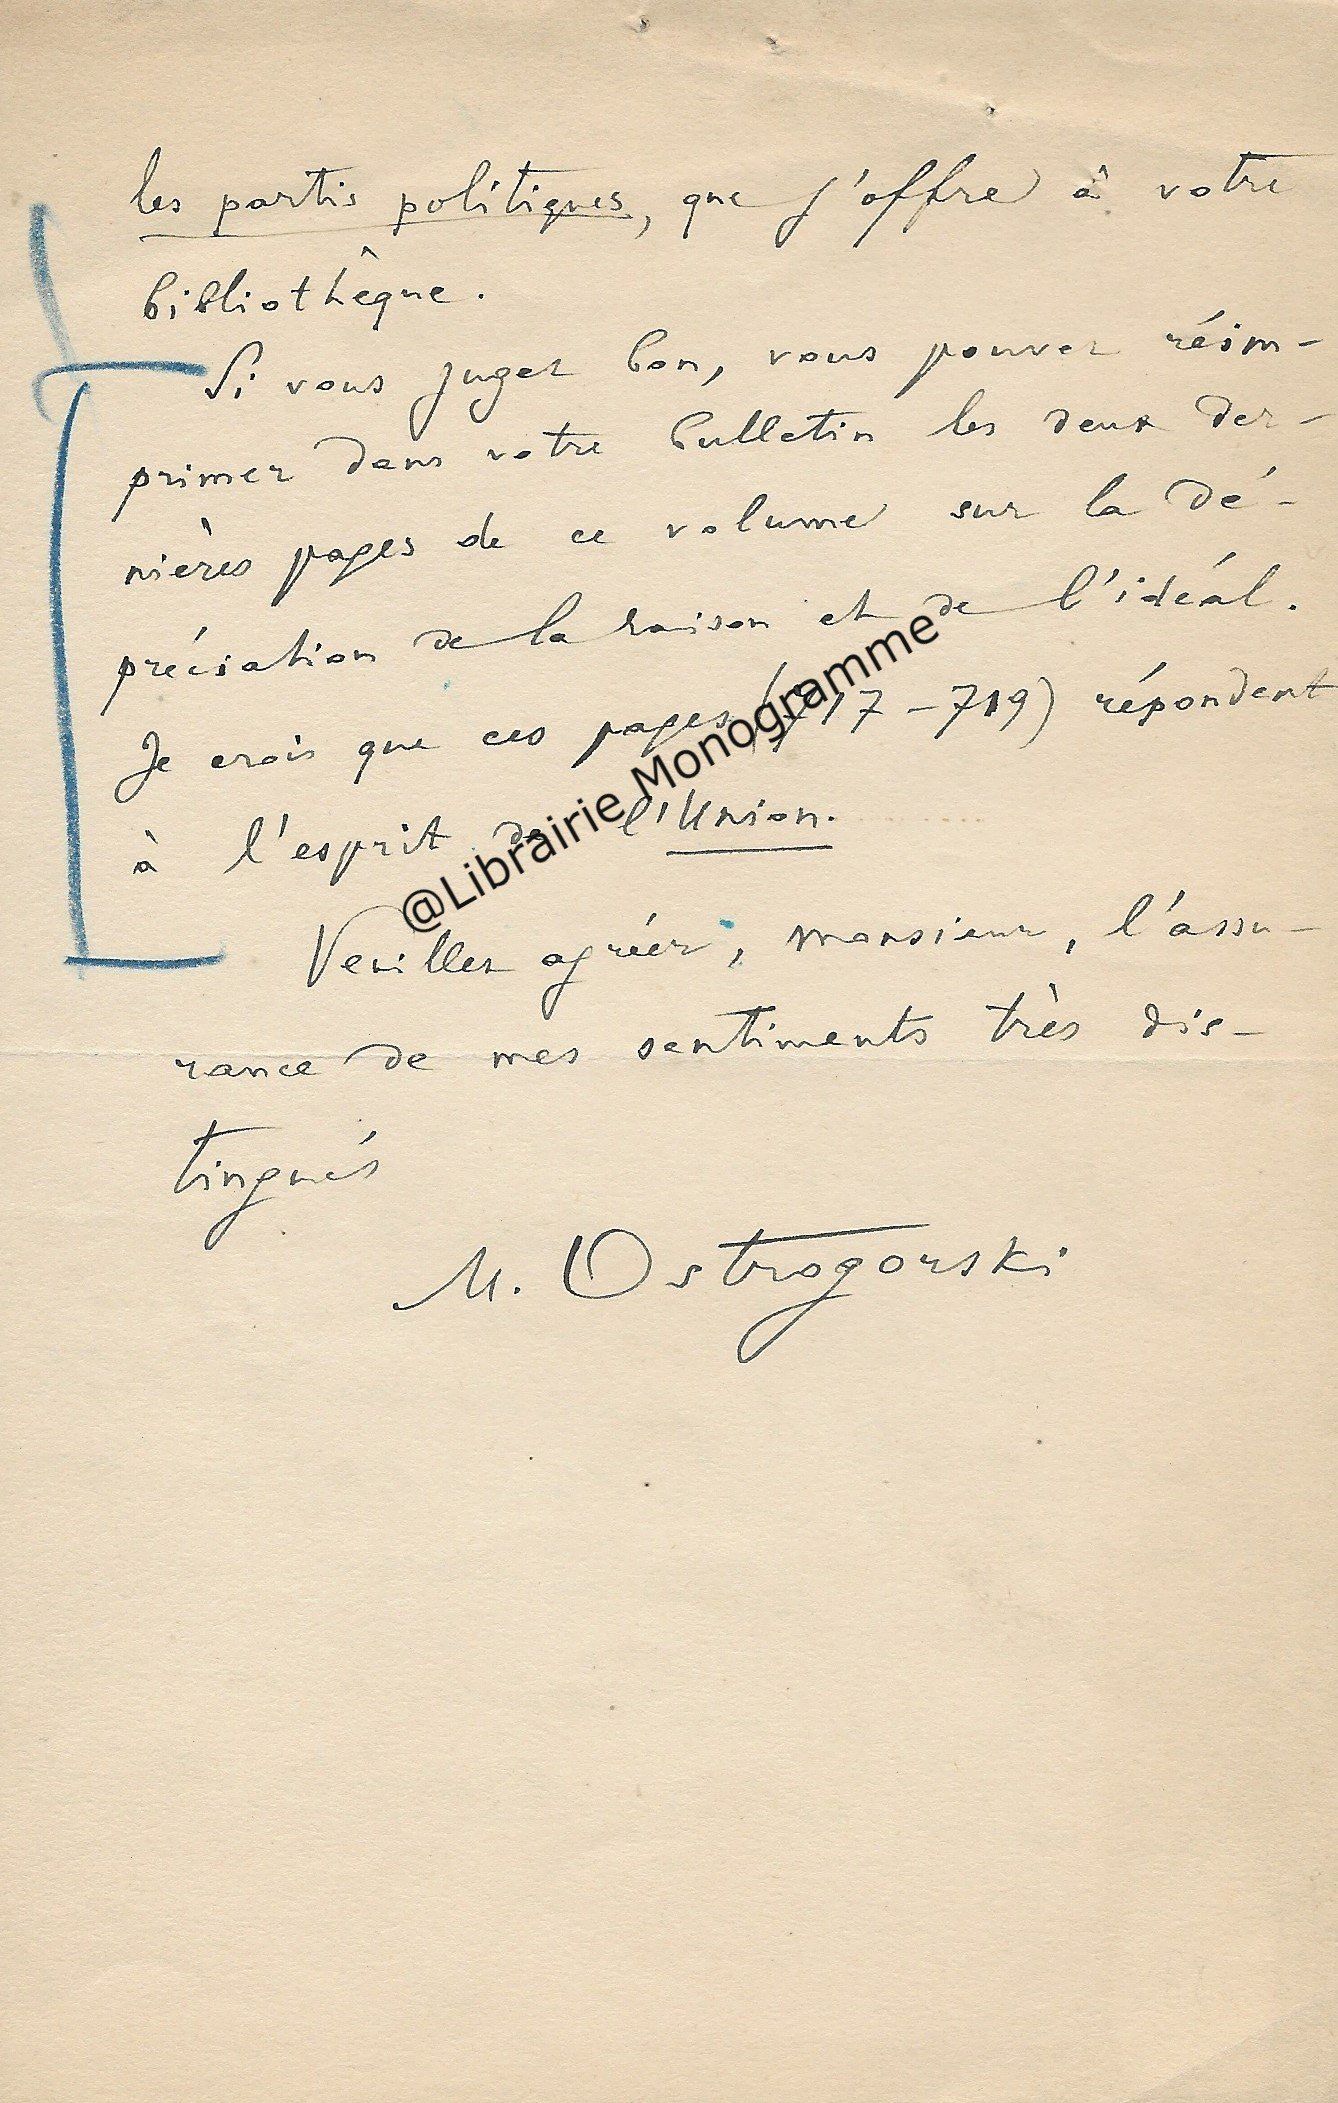 les partis politiques, que j'offre à votre
bibliothêque.
Si vous jugez bon, vous pouvez réim-
primer dans votre bulletin les deux der-
nières pages de ce volume sur la dé-
préciation de la raison et de l'idéal.
Je crois que ces pages (717-719) répondent
à l'esprit de l'Union.
Veuillez agréer, monsieur, l'assu-
rance de mes sentiments très dis-
tingués
M. Ostrogorski
@Librairie Monogramme